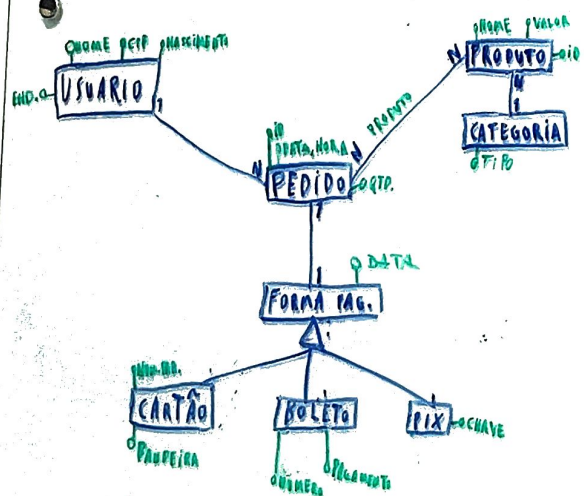 NOME CPF NASCIMENTO
END.
USUARIO
1
NOME VALOR
PRODUTO
ID
N
N
1
CATEGORIA
TIPO
PRODUTO
N
ID
DATA, HORA
N
PEDIDO
QTD.
1
1
DATA
FORMA PAG.
CARTÃO
BANDEIRA
BOLETO
NÚMERO
PAGAMENTO
PIX
CHAVE